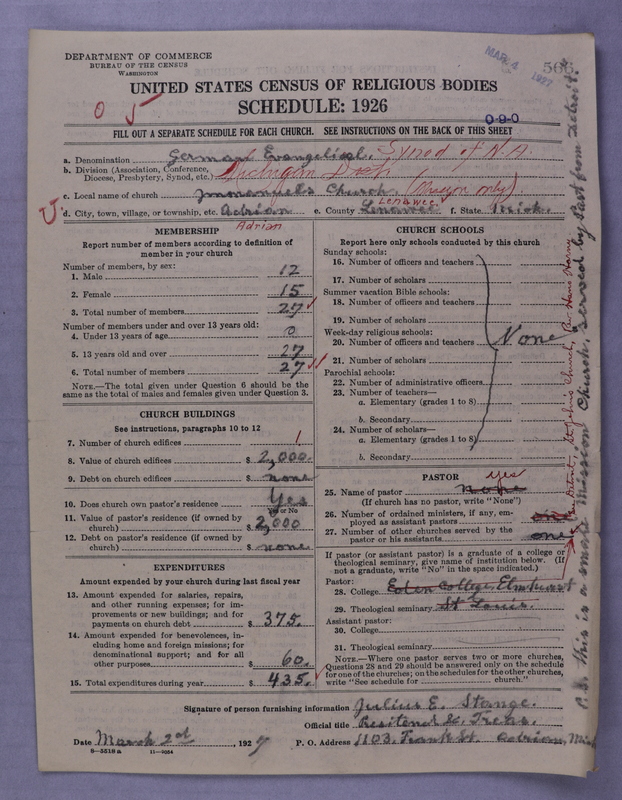 DEPARTMENT OF COMMERCE
BUREAU OF THE CENSUS
WASHINGTON
MAR 4 1927
566
UNITED STATES CENSUS OF RELIGIOUS BODIES
SCHEDULE: 1926
0 5
0-9-0
FILL OUT A SEPARATE SCHEDULE FOR EACH CHURCH. SEE INSTRUCTIONS ON THE BACK OF THIS SHEET
a. Denomination German Evangelical, Synod of N.A.
b. Division (Association, Conference, Diocese, Presbytery, Synod, etc.) Michigan Dist
c. Local name of church Immanuels Church. (Mission only)
d. City, town, village, or township, etc. Adrian e. County Lenawee f. State Mich.
Adrian
Lenawee
MEMBERSHIP
Report number of members according to definition of member in your church
Number of members, by sex:
1. Male 12
2. Female 15
3. Total number of members 27
Number of members under and over 13 years old:
4. Under 13 years of age 0
5. 13 years old and over 27
6. Total number of members 27
NOTE.—The total given under Question 6 should be the same as the total of males and females given under Question 3.
CHURCH BUILDINGS
See instructions, paragraphs 10 to 12
7. Number of church edifices 1
8. Value of church edifices $ 2,000.
9. Debt on church edifices $ none
10. Does church own pastor's residence Yes
Yes or No
11. Value of pastor's residence (if owned by church) $ 2,000
12. Debt on pastor's residence (if owned by church) $ none
EXPENDITURES
Amount expended by your church during last fiscal year
13. Amount expended for salaries, repairs, and other running expenses; for improvements or new buildings; and for payments on church debt $ 375.
14. Amount expended for benevolences, including home and foreign missions; for denominational support; and for all other purposes $ 60.
15. Total expenditures during year $ 435.
CHURCH SCHOOLS
Report here only schools conducted by this church
Sunday schools:
16. Number of officers and teachers
17. Number of scholars
Summer vacation Bible schools:
18. Number of officers and teachers
19. Number of scholars
Week-day religious schools:
20. Number of officers and teachers None
21. Number of scholars
Parochial schools:
22. Number of administrative officers
23. Number of teachers—
a. Elementary (grades 1 to 8)
b. Secondary
24. Number of scholars—
a. Elementary (grades 1 to 8)
b. Secondary
PASTOR
yes
25. Name of pastor none
(If church has no pastor, write "None")
26. Number of ordained ministers, if any, employed as assistant pastors one
27. Number of other churches served by the pastor or his assistants one
If pastor (or assistant pastor) is a graduate of a college or theological seminary, give name of institution below. (If not a graduate, write "No" in the space indicated.)
Pastor:
28. College Eden College, Elmhurst
29. Theological seminary St Louis.
Assistant pastor:
30. College
31. Theological seminary
NOTE.—Where one pastor serves two or more churches, Questions 28 and 29 should be answered only on the schedule for one of the churches; on the schedules for the other churches, write "See schedule for church."
Signature of person furnishing information Julius E. Stange.
Official title Presitend & Treas.
Date March 2nd, 1927 P. O. Address 1103. Frank St. Adrian, Mich
8—5518a 11—9054
P.S. This is a small mission Church, served by Past from Detroit.